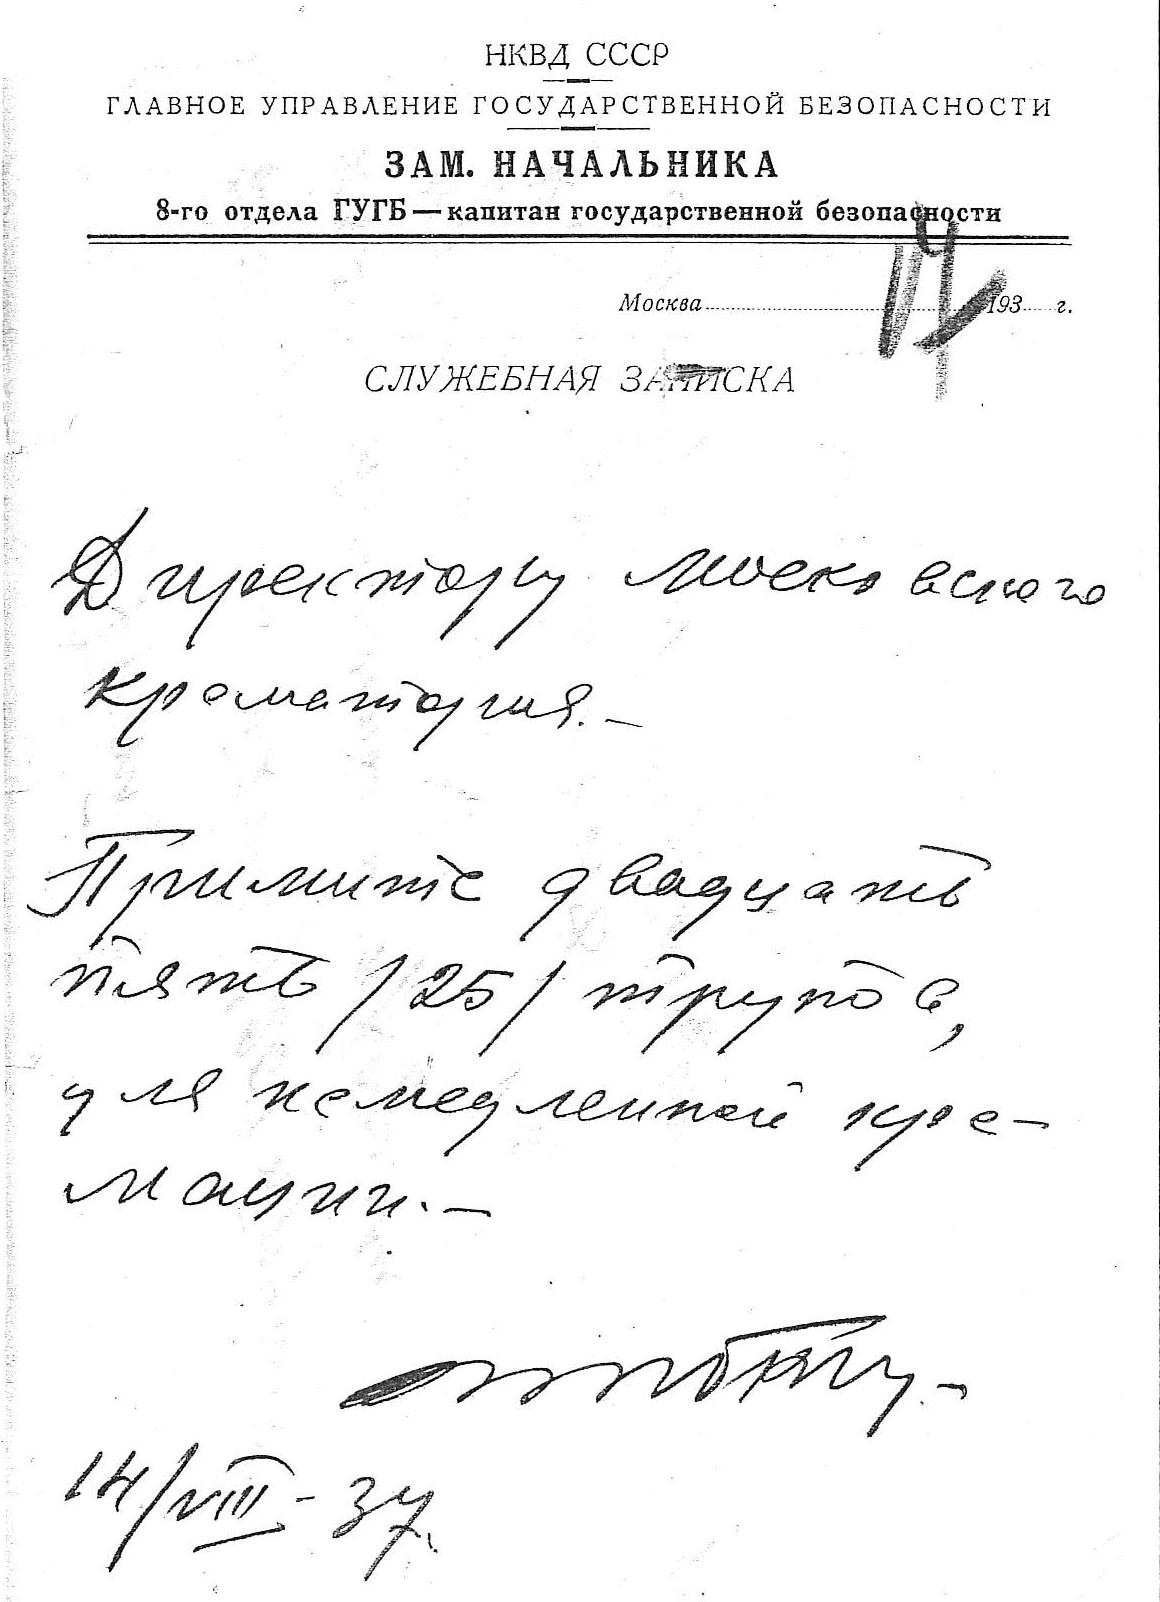 НКВД СССР
ГЛАВНОЕ УПРАВЛЕНИЕ ГОСУДАРСТВЕННОЙ БЕЗОПАСНОСТИ
ЗАМ. НАЧАЛЬНИКА
8-го отдела ГУГБ — капитан государственной безопасности
14
Москва 193 г.
СЛУЖЕБНАЯ ЗАПИСКА
Директору московского
крематория. —
Примите двадцать
пять /25/ трупов,
для немедленной кре-
мации. —
14/VIII - 37.